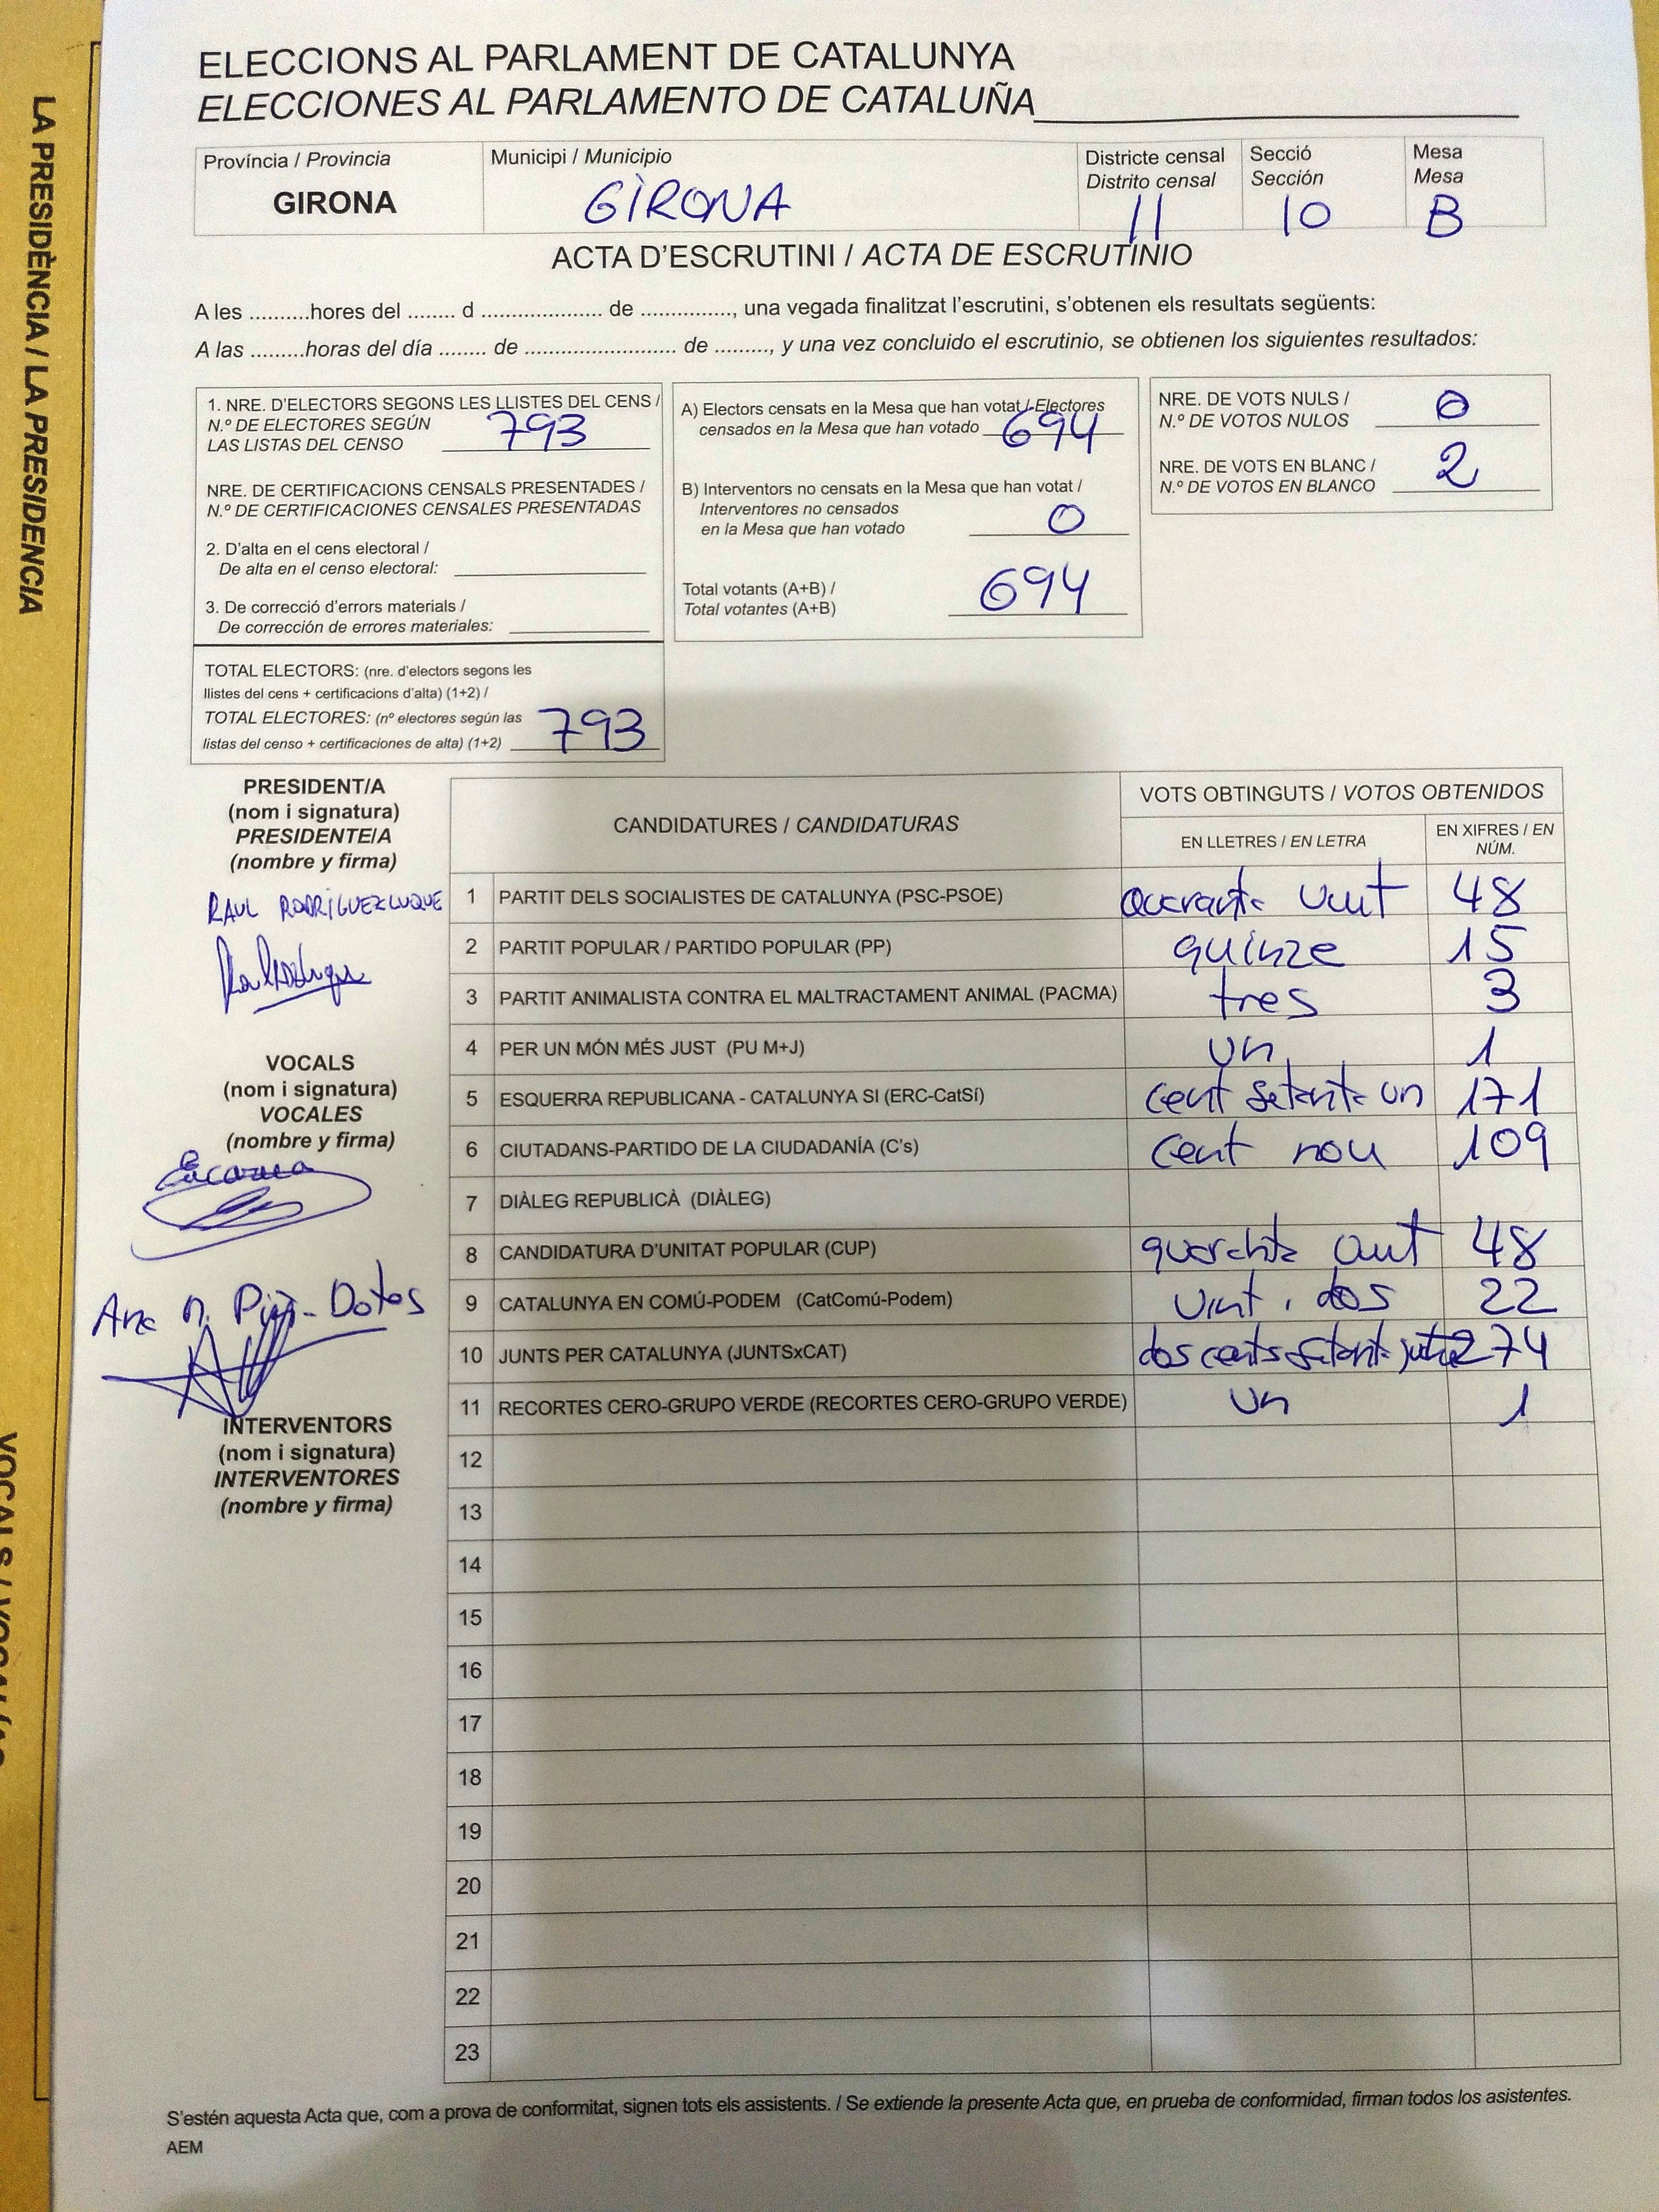 ELECCIONS AL PARLAMENT DE CATALUNYA
ELECCIONES AL PARLAMENTO DE CATALUÑA
Província / Provincia
GIRONA
Municipi / Municipio
GIRONA
Districte censal
Distrito censal
11
Secció
Sección
10
Mesa
Mesa
B
ACTA D'ESCRUTINI / ACTA DE ESCRUTINIO
A les ..........hores del ........ d .................... de ..............., una vegada finalitzat l'escrutini, s'obtenen els resultats següents:
A las .........horas del día ........ de ......................... de ........., y una vez concluido el escrutinio, se obtienen los siguientes resultados:
1. NRE. D'ELECTORS SEGONS LES LLISTES DEL CENS /
N.º DE ELECTORES SEGÚN
LAS LISTAS DEL CENSO 793
NRE. DE CERTIFICACIONS CENSALS PRESENTADES /
N.º DE CERTIFICACIONES CENSALES PRESENTADAS
2. D'alta en el cens electoral /
De alta en el censo electoral:
3. De correcció d'errors materials /
De corrección de errores materiales:
TOTAL ELECTORS: (nre. d'electors segons les
llistes del cens + certificacions d'alta) (1+2) /
TOTAL ELECTORES: (nº electores según las
listas del censo + certificaciones de alta) (1+2) 793
A) Electors censats en la Mesa que han votat / Electores
censados en la Mesa que han votado 694
B) Interventors no censats en la Mesa que han votat /
Interventores no censados
en la Mesa que han votado 0
Total votants (A+B) /
Total votantes (A+B) 694
NRE. DE VOTS NULS /
N.º DE VOTOS NULOS 0
NRE. DE VOTS EN BLANC /
N.º DE VOTOS EN BLANCO 2
PRESIDENT/A
(nom i signatura)
PRESIDENTE/A
(nombre y firma)
RAUL RODRIGUEZ LUQUE
VOCALS
(nom i signatura)
VOCALES
(nombre y firma)
INTERVENTORS
(nom i signatura)
INTERVENTORES
(nombre y firma)
CANDIDATURES / CANDIDATURAS
VOTS OBTINGUTS / VOTOS OBTENIDOS
EN LLETRES / EN LETRA
EN XIFRES / EN
NÚM.
1 PARTIT DELS SOCIALISTES DE CATALUNYA (PSC-PSOE) quaranta vuit 48
2 PARTIT POPULAR / PARTIDO POPULAR (PP) quinze 15
3 PARTIT ANIMALISTA CONTRA EL MALTRACTAMENT ANIMAL (PACMA) tres 3
4 PER UN MÓN MÉS JUST (PU M+J) un 1
5 ESQUERRA REPUBLICANA - CATALUNYA SI (ERC-CatSí) cent setanta un 171
6 CIUTADANS-PARTIDO DE LA CIUDADANÍA (C's) cent nou 109
7 DIÀLEG REPUBLICÀ (DIÀLEG)
8 CANDIDATURA D'UNITAT POPULAR (CUP) quaranta vuit 48
9 CATALUNYA EN COMÚ-PODEM (CatComú-Podem) vint i dos 22
10 JUNTS PER CATALUNYA (JUNTSxCAT) dos cents setanta 274
11 RECORTES CERO-GRUPO VERDE (RECORTES CERO-GRUPO VERDE) un 1
12
13
14
15
16
17
18
19
20
21
22
23
S'estén aquesta Acta que, com a prova de conformitat, signen tots els assistents. / Se extiende la presente Acta que, en prueba de conformidad, firman todos los asistentes.
AEM
LA PRESIDÈNCIA / LA PRESIDENCIA